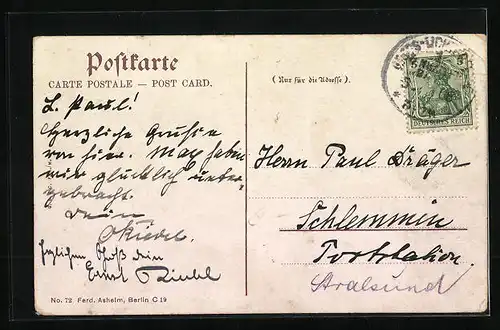 Postkarte
CARTE POSTALE — POST CARD.
(Nur für die Adresse).
L. Paul!
Herzliche Grüsse
von hier. Max haben
wir glücklich unter-
gebracht.
Dein
Herzlichen Gruß dein
Ernst
Herrn Paul Dräger
Schlemmin
Poststation
Stralsund
DEUTSCHES REICH
No. 72 Ferd. Ashelm, Berlin C 19